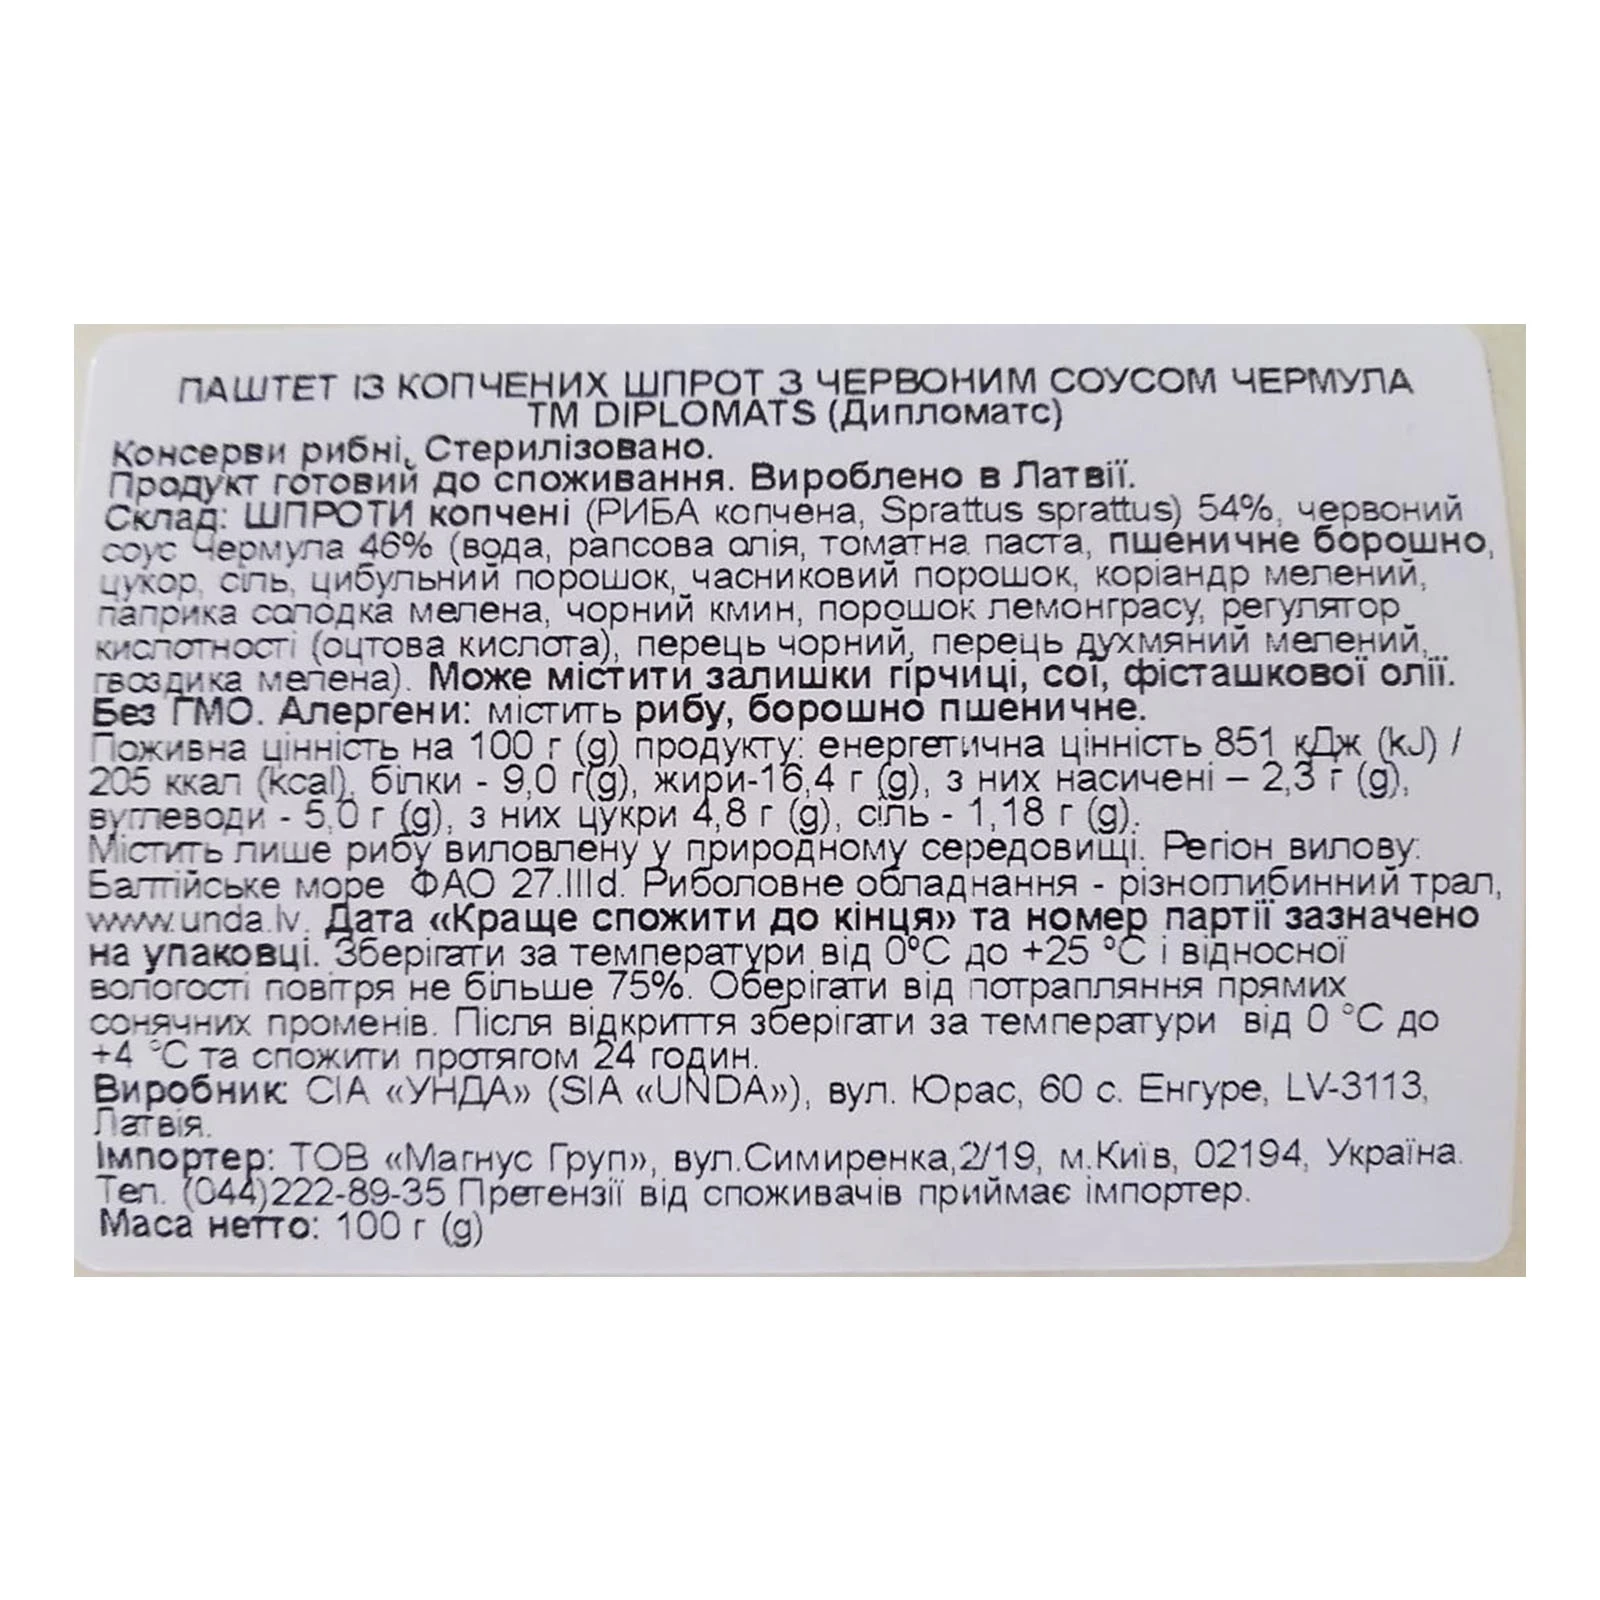 ПАШТЕТ ІЗ КОПЧЕНИХ ШПРОТ З ЧЕРВОНИМ СОУСОМ ЧЕРМУЛА
ТМ DIPLOMATS (Дипломатс)
Консерви рибні. Стерилізовано.
Продукт готовий до споживання. Вироблено в Латвії.
Склад: ШПРОТИ копчені (РИБА копчена, Sprattus sprattus) 54%, червоний
соус Чермула 46% (вода, рапсова олія, томатна паста, пшеничне борошно,
цукор, сіль, цибульний порошок, часниковий порошок, коріандр мелений,
паприка солодка мелена, чорний кмин, порошок лемонграсу, регулятор
кислотності (оцтова кислота), перець чорний, перець духмяний мелений,
гвоздика мелена). Може містити залишки гірчиці, сої, фісташкової олії.
Без ГМО. Алергени: містить рибу, борошно пшеничне.
Поживна цінність на 100 г (g) продукту: енергетична цінність 851 кДж (kJ) /
205 ккал (kcal), білки - 9,0 г(g), жири-16,4 г (g), з них насичені – 2,3 г (g),
вуглеводи - 5,0 г (g), з них цукри 4,8 г (g), сіль - 1,18 г (g).
Містить лише рибу виловлену у природному середовищі. Регіон вилову:
Балтійське море ФАО 27.IIId. Риболовне обладнання - різноглибинний трал,
www.unda.lv. Дата «Краще спожити до кінця» та номер партії зазначено
на упаковці. Зберігати за температури від 0°С до +25 °С і відносної
вологості повітря не більше 75%. Оберігати від потрапляння прямих
сонячних променів. Після відкриття зберігати за температури від 0 °С до
+4 °С та спожити протягом 24 годин.
Виробник: СІА «УНДА» (SIA «UNDA»), вул. Юрас, 60 с. Енгуре, LV-3113,
Латвія.
Імпортер: ТОВ «Магнус Груп», вул.Симиренка,2/19, м.Київ, 02194, Україна.
Тел. (044)222-89-35 Претензії від споживачів приймає імпортер.
Маса нетто: 100 г (g)